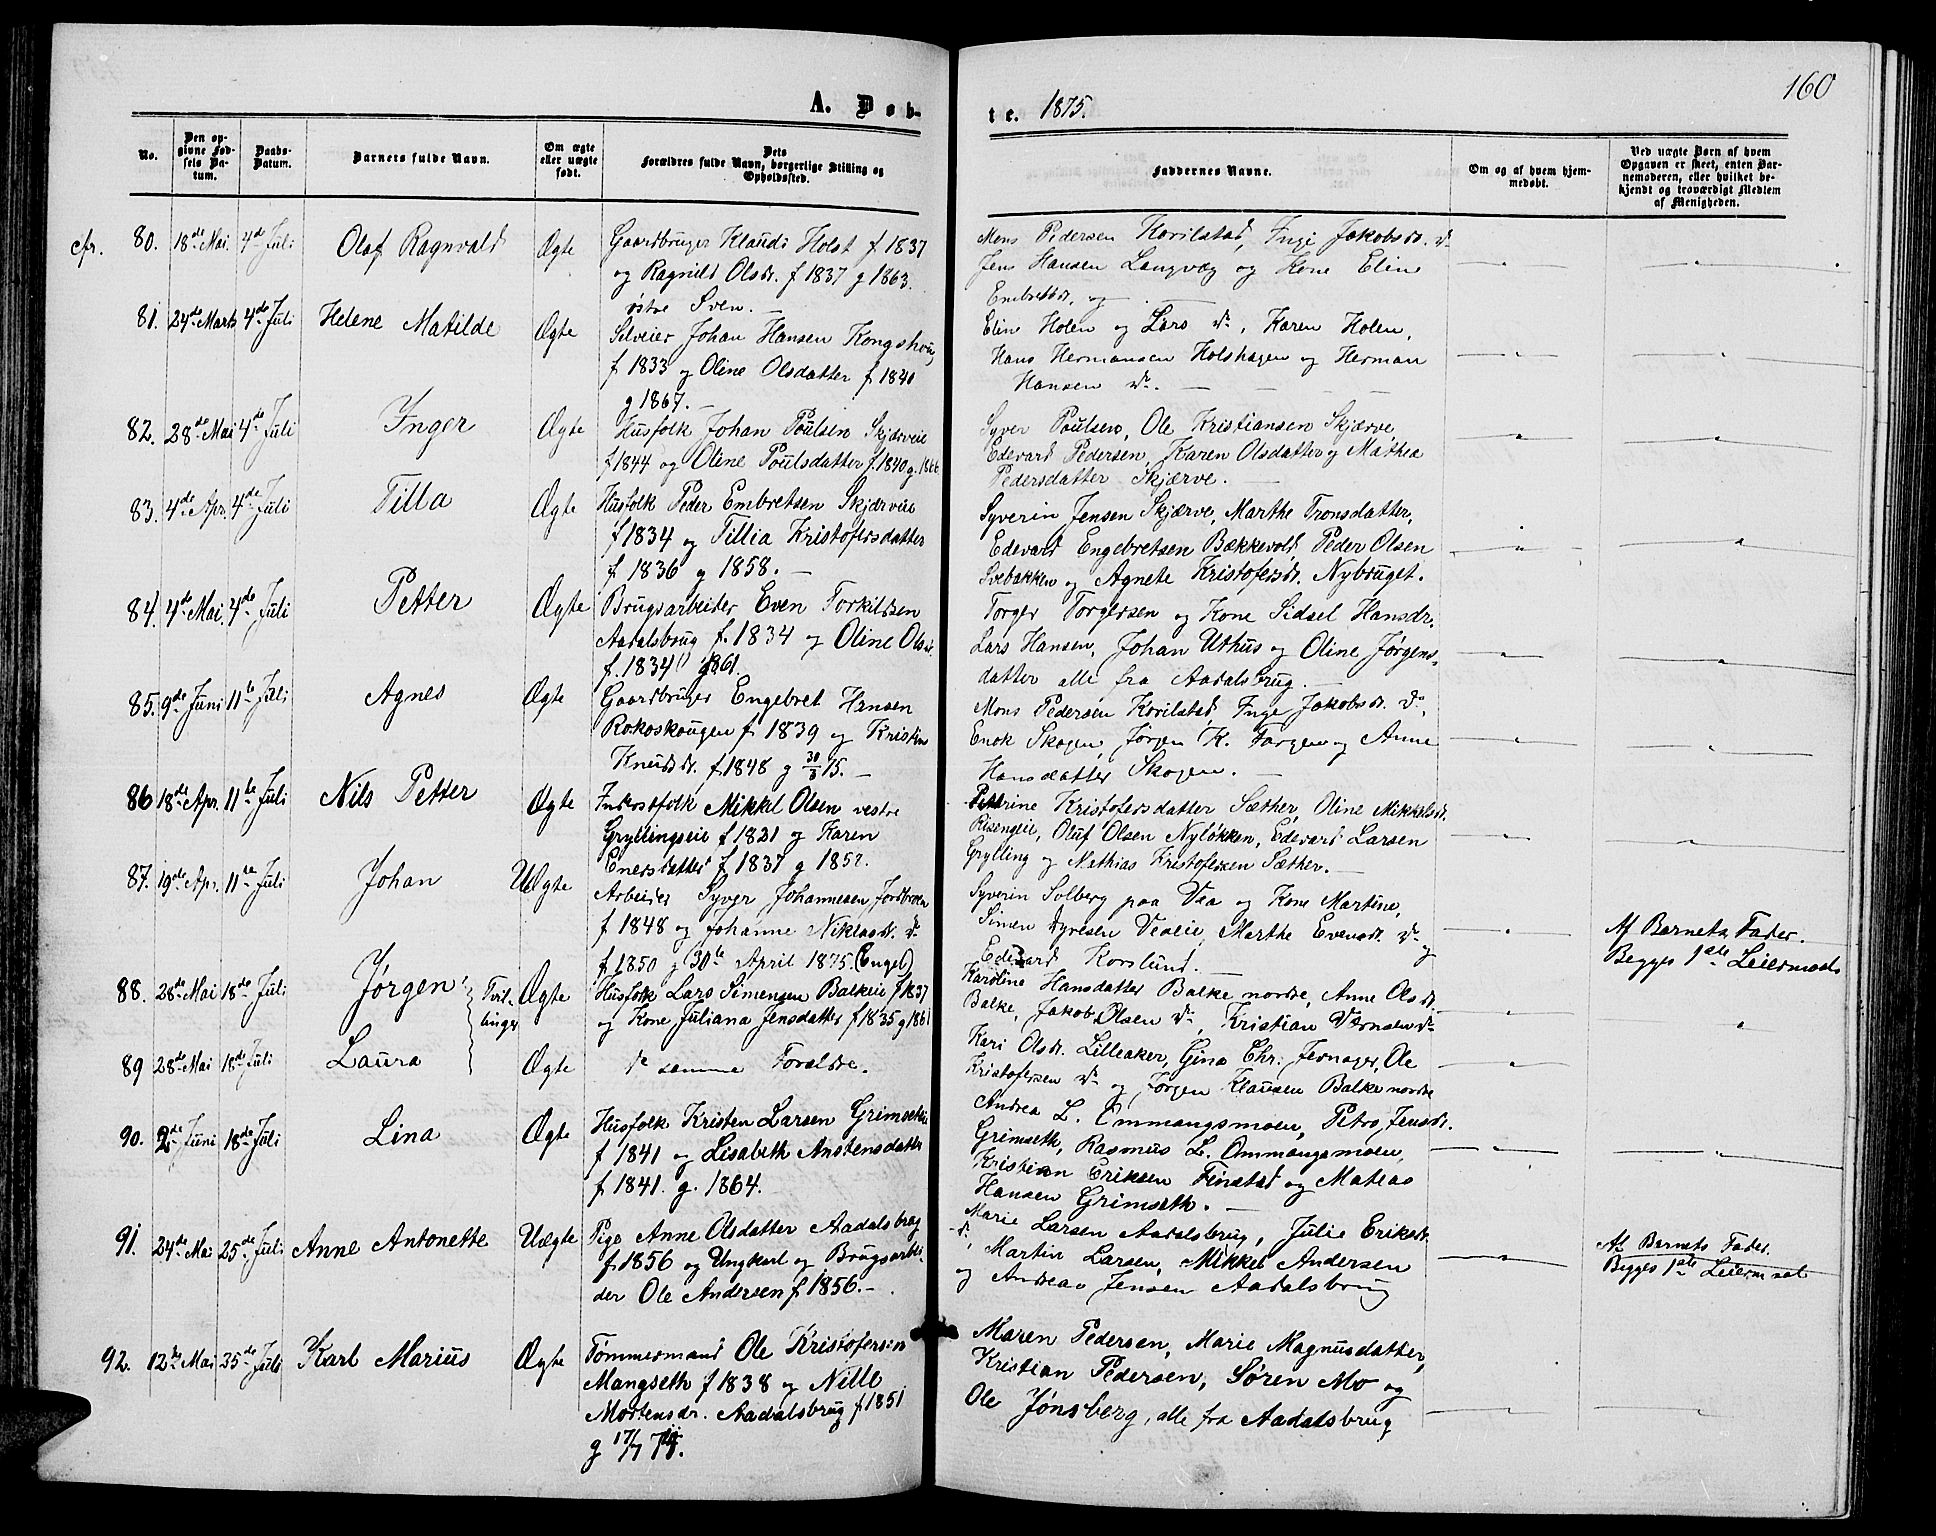 160
A. Døb-
te. 1875.
No.
Den op-
givne Fød-
sels Da-
tum.
Daabs-
Datum.
Barnets fulde Navn.
Om ægte
eller uægte
født.
Dets
Forældres fulde Navn, borgerlige Stilling og
Opholdssted.
Faddernes Navne.
Om og af hvem hjem-
medøbt.
Ved uægte Børn af hvem
Opgaven er skeet, enten Bar-
nemoderen, eller hvilket be-
kjendt og troværdigt Medlem
af Menigheden.
cfr. 80. 18de Mai. 4de Juli Olaf Ragnvald Ægte Gaardbruger Klauds Holst f 1837
og Ragnild Olsdr. f 1837 g 1863.
østre Sven. —
Mons Pedersen Korilstad, Inge Jakobsdr. do
Jens Hansen Langvæg og Kone Eline
Embretsdr. og
81. 24de Marts 4de Juli Helene Matilde Ægte Selveier Johan Hansen Kongshou,
f 1833 og Oline Olsdatter f 1840
g 1867. —
Elin Holen og Lars do, Karen Holen,
Hans Hermansen Holshagen og Herman
Hansen do. —
82. 28de Mai 4de Juli Inger Ægte Husfolk Johan Poulsen Skjærveie
f 1844 og Oline Poulsdatter f. 1840 g. 1866
Syver Poulsen, Ole Kristiansen Skjærve,
Edevard Pedersen, Karen Olsdatter og Mathea
Pedersdatter Skjærve. —
83. 4de Apr. 4de Juli Tilla Ægte Husfolk Peder Embretsen Skjærveie
f 1834 og Tillia Kristofersdatter
f. 1836 g 1858. —
Syverin Jensen Skjærve, Marthe Tronsdatter,
Edevard Engebretsen Bækkevold, Peder Olsen
Svebakken og Agnete Kristofersdr. Nybruget.
84. 4de Mai. 4de Juli Petter Ægte Brugsarbeider Even Torkildsen
Aadalsbrug f. 1834 og Oline Olsdr.
f. 1834 g 1861.
Torger Torgersen og Kone Sidsel Hansdr.
Lars Hansen, Johan Uthus og Oline Jørgens-
datter alle fra Aadalsbrug. —
85. 9de Juni 11te Juli Agnes Ægte Gaardbruger Engebret Hansen
Rokoskougen f 1839 og Kristin
Knudsdr. f. 1848 g 30/3 75. —
Mons Pedersen Korilstad, Inge Jakobsdr. do,
Enok Skogen, Jørgen K. Torgen og Anne
Hansdatter Skogen. —
86 18de Apr. 11te Juli Nils Petter Ægte Inderstfolk Mikkel Olsen vestre
Gryllingseie f 1821 og Karen
Enersdatter f 1837 g 1857.
Petterine Kristofersdatter Sæther, Oline Mikkelsdr.
Risengeie, Oluf Olsen Nyløkken, Edevard Larsen
Grylling og Mathias Kristofersen Sæther. —
87. 19de Apr. 11te Juli Johan Uægte Arbeider Syver Johannesen Jordbroen
f 1848 og Johanne Niklasdr. do
f 1850 g 30te April 1875. (Engel)
Syverin Solberg paa Vea og Kone Martine,
Simen Dyresen Veaeie, Marthe Evensdr. do og
Edevard Korslund. —
Af Barnets Fader.
Begges 1ste Leiermaal
88. 28de Mai 18de Juli Jørgen Tvil-
linger Ægte Husfolk Lars Simensen Balkeie f 1837
og Kone Juliana Jensdatter f 1835 g 1861
Karoline Hansdatter Balke nordre, Anne Olsdr.
Balke, Jakob Olsen do, Kristian Værnsen do
89 28de Mai 18de Juli Laura Ægte de samme Forældre.
Kari Olsdr. Lilleaker, Gina Chr. Jernager, Ole
Kristofersen do og Jørgen Klausen Balke nordre
90. 2de Juni 18de Juli Lina Ægte Husfolk Kristen Larsen Grimseth
f 1841 og Lisabeth Anstensdatter
f 1841. g. 1864.
Andrea L. Ommangsmoen, Petra Jensdr.
Grimseth, Rasmus L. Ommangsmoen,
Kristian Eriksen Finstad og Matias
Hansen Grimseth. —
91. 24de Mai 25de Juli Anne Antonette Uægte Pige Anne Olsdatter Aadalsbrug
f. 1856 og Ungkarl og Brugsarbei-
der Ole Andersen f 1856. —
Marie Larsen Aadalsbrug, Julie Eriksdr.
do, Martin Larsen, Mikkel Andersen
og Andreas Jensen Aadalsbrug
Af Barnets Fader.
Begges 1ste Leiermaal
92. 12te Mai 25de Juli Karl Marius Ægte Tømmermand Ole Kristofersen
Mangseth f 1838 og Nille
Mortensdr. Aadalsbrug f 1851
g 17/7 75.
Maren Pedersen, Marie Magnusdatter,
Kristian Pedersen, Søren Mo og
Ole Jønsberg, alle fra Aadalsbrug